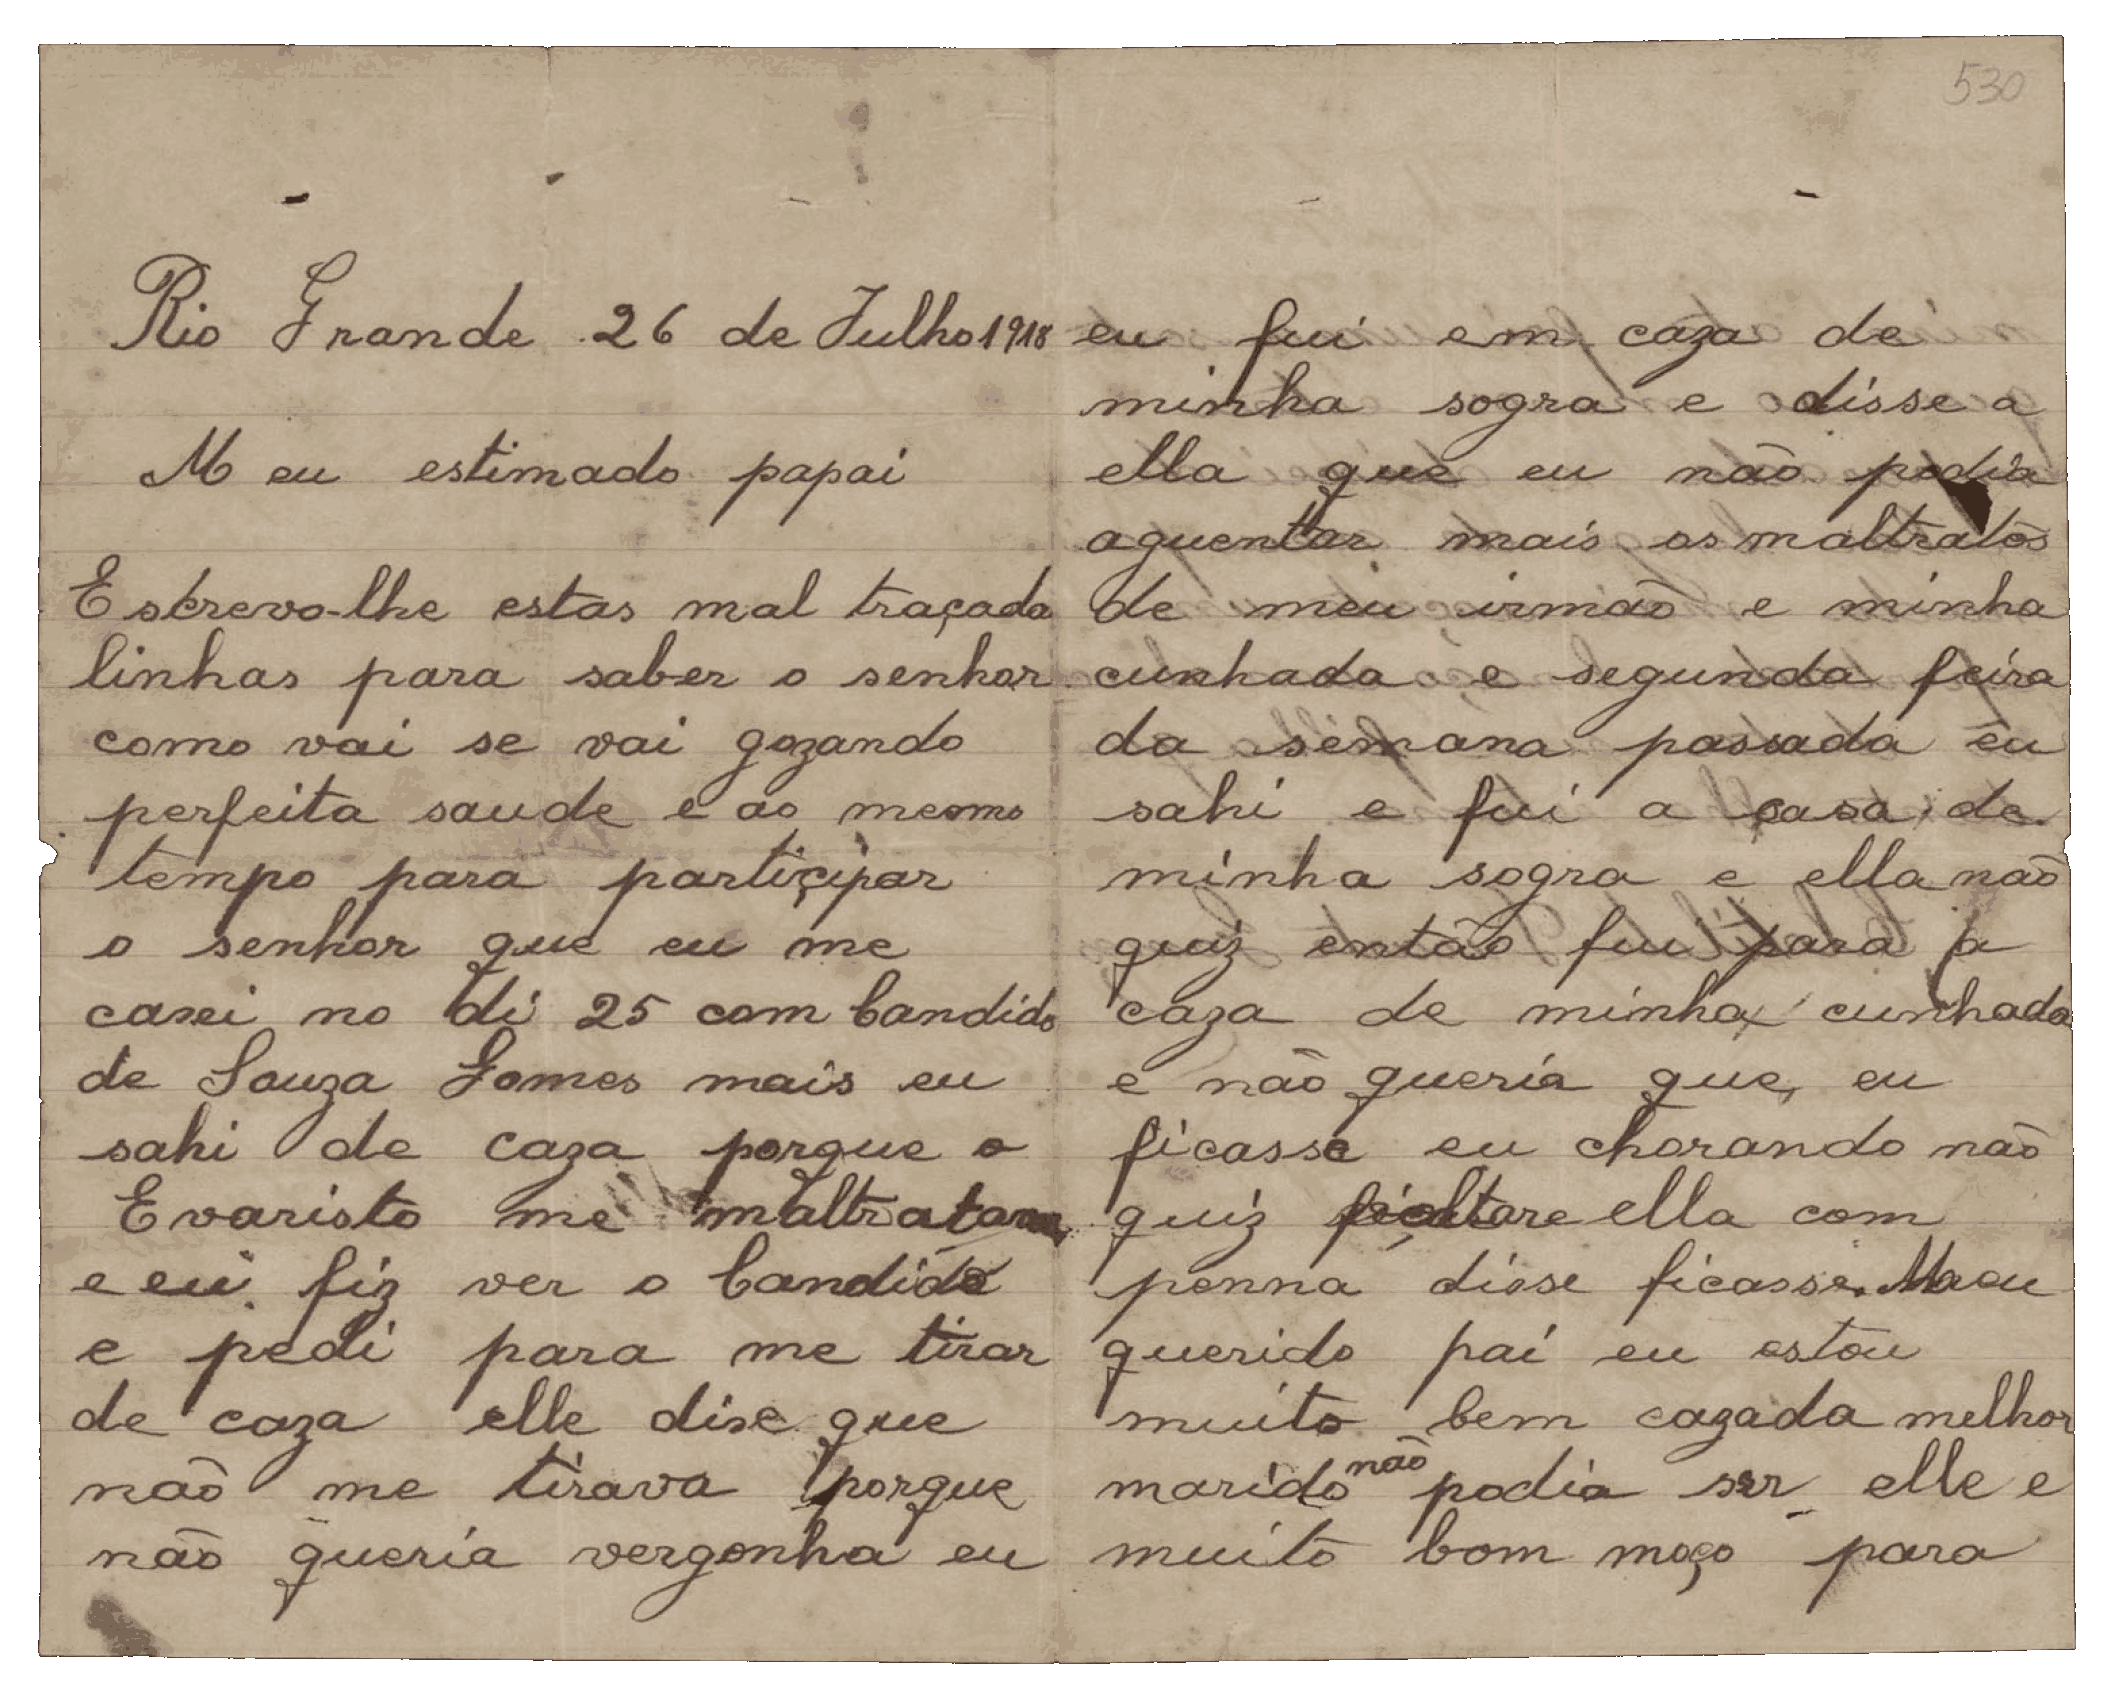 530
Rio Grande 26 de Julho 1918
Meu estimado papai
Escrevo-lhe estas mal traçada
linhas para saber o senhor
como vai se vai gozando
perfeita saude e ao mesmo
tempo para partiçipar
o senhor que eu me
casei no di 25 com Candido
de Souza Gomes mais eu
sahi de caza porque o
Evaristo me maltratava
e eu fiz ver o Candido
e pedi para me tirar
de caza elle dise que
não me tirava porque
não queria vergonha eu
eu fui em caza de
minha sogra e disse a
ella que eu não podia
aguentar mais os maltratos
de meu irmão e minha
cunhada e segunda feira
da semana passada eu
sahi e fui a casa de
minha sogra e ella não
quiz então fui para a
caza de minha cunhada
e não queria que eu
ficasse eu chorando não
quiz ella com
penna disse ficasse. Meu
querido pai eu estou
muito bem cazada melhor
marido não podia ser elle e
muito bom moço para